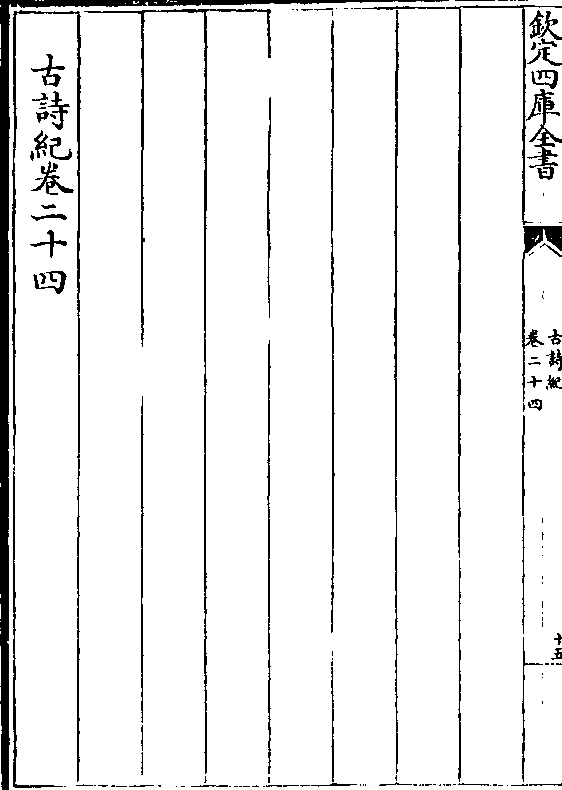 欽定四庫全書
古詩紀
卷二十四
十五
古詩紀卷二十四